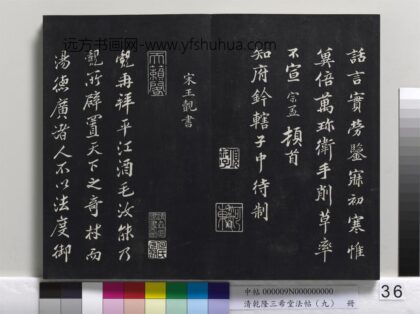 話言實勞鑒寐初寒惟
冀倍萬珎衛手削草率
不宣 宗孟 頓首
知府鈐轄子中待制
宋王覿書
覿再拜平江酒毛汝能乃
覿所辟置天下之奇材而
湯德廣渚人不以法度御
远方书画网-www.yfshuhua.com
中帖 000009N000000000
清乾隆三希堂法帖（九） 冊
36